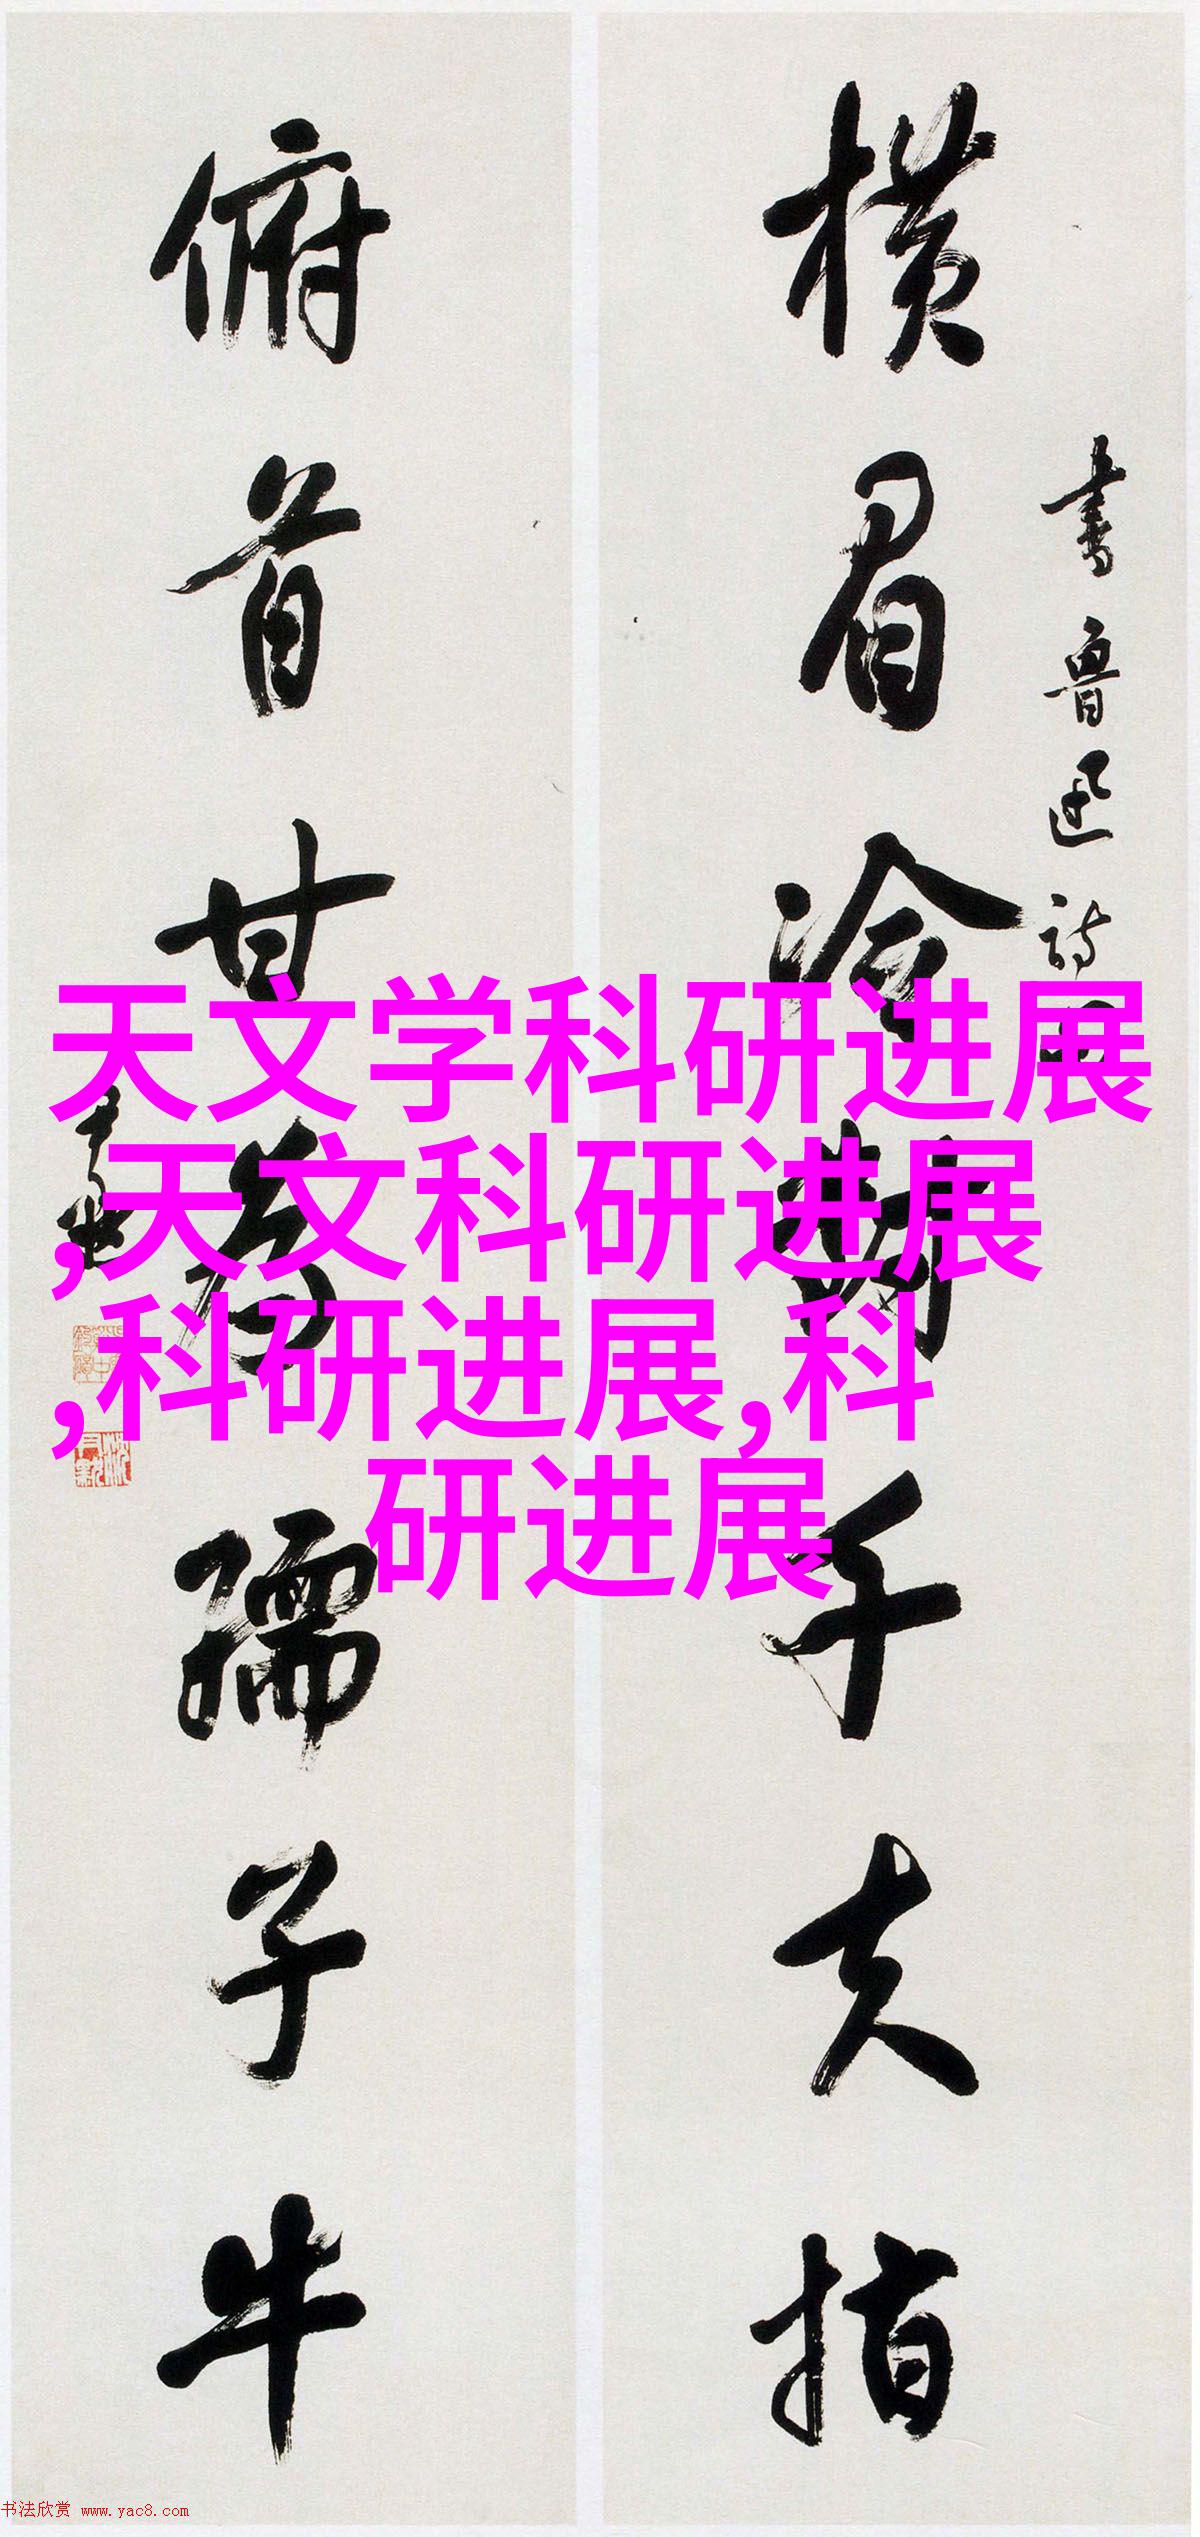 横眉冷对千夫指
书鲁迅诗句
俯首甘为孺子牛
天文学科研进展
,天文科研进展
,科研进展,科
研进展
书法欣赏 www.yac8.com